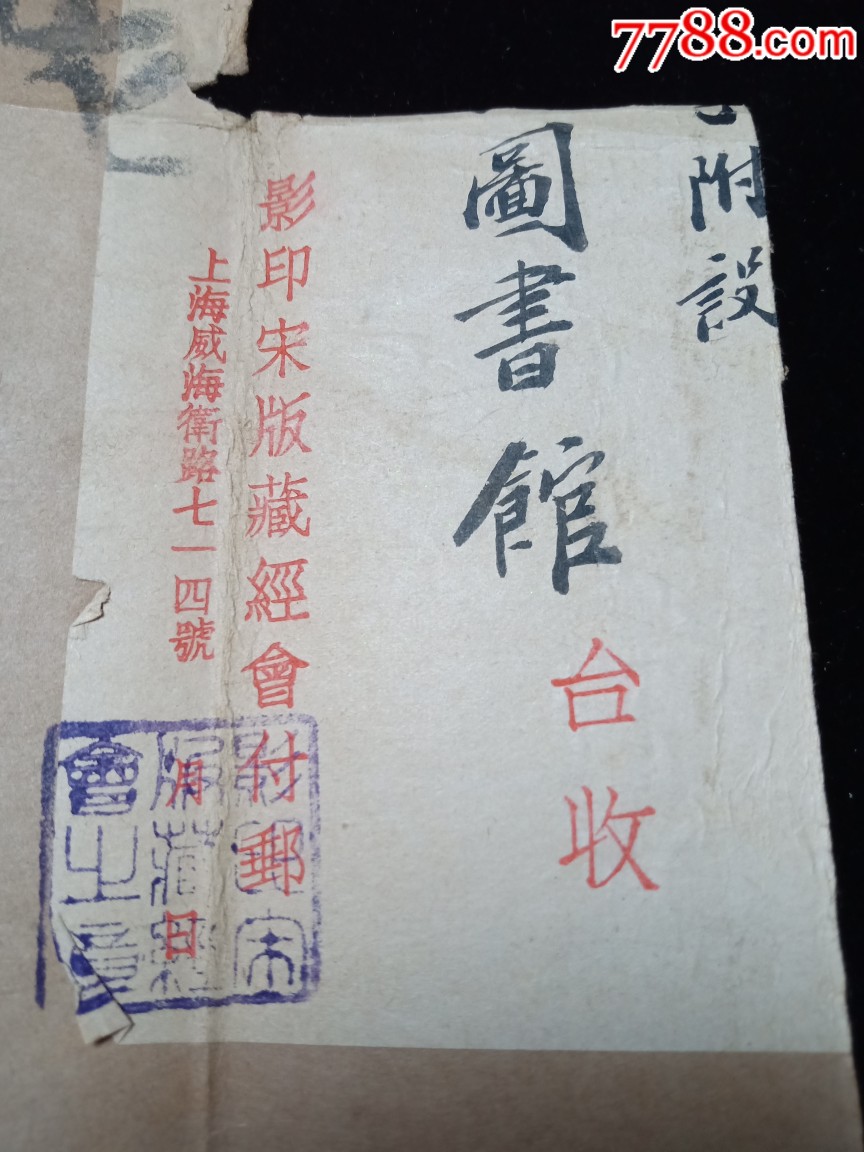 7788.com
附設
圖書館
台收
影印宋版藏經會付郵
上海威海衛路七一四號
月 日
影印宋
版藏經
會之章